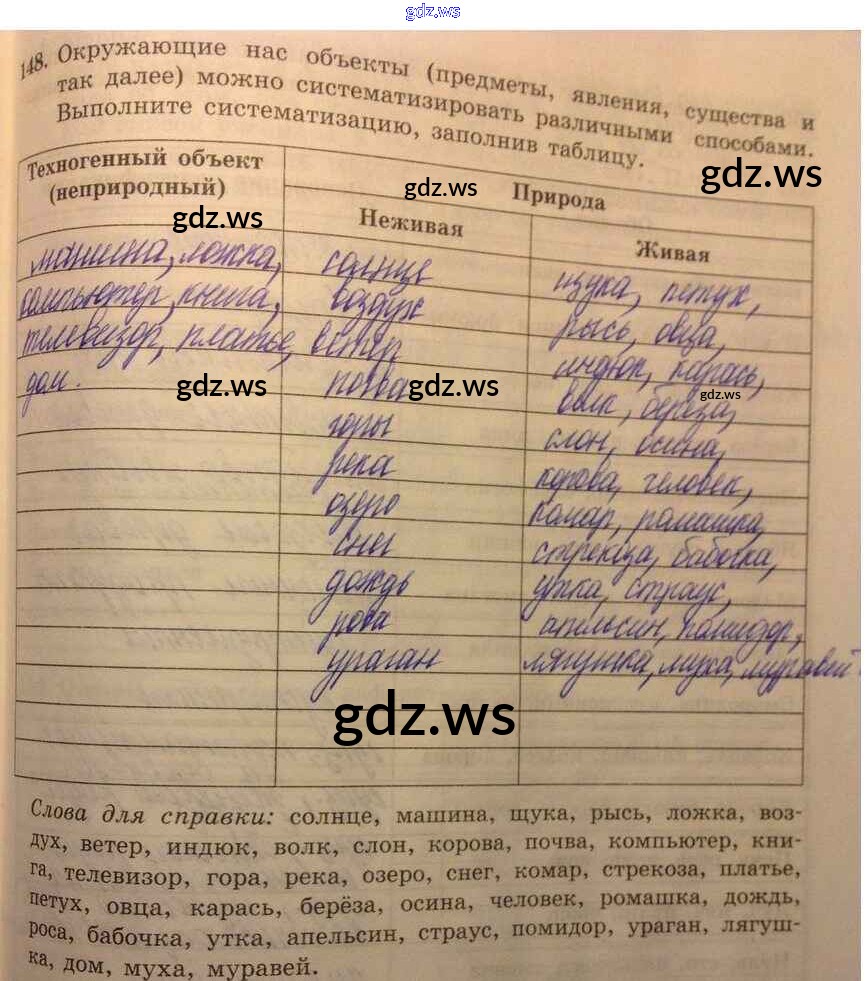 gdz.ws
148. Окружающие нас объекты (предметы, явления, существа и
так далее) можно систематизировать различными способами.
Выполните систематизацию, заполнив таблицу.
gdz.ws
Техногенный объект
(неприродный)
gdz.ws
gdz.ws
Природа
Неживая
Живая
машина, ложка,
компьютер, книга,
телевизор, платье,
дом.
солнце
воздух
ветер
почва
горы
река
озеро
снег
дождь
роса
ураган
щука, петух,
рысь, овца,
индюк, карась,
волк, берёза,
слон, осина,
корова, человек,
комар, ромашка,
стрекоза, бабочка,
утка, страус,
апельсин, помидор,
лягушка, муха, муравей
gdz.ws
gdz.ws
gdz.ws
gdz.ws
Слова для справки: солнце, машина, щука, рысь, ложка, воз-
дух, ветер, индюк, волк, слон, корова, почва, компьютер, кни-
га, телевизор, гора, река, озеро, снег, комар, стрекоза, платье,
петух, овца, карась, берёза, осина, человек, ромашка, дождь,
роса, бабочка, утка, апельсин, страус, помидор, ураган, лягуш-
ка, дом, муха, муравей.